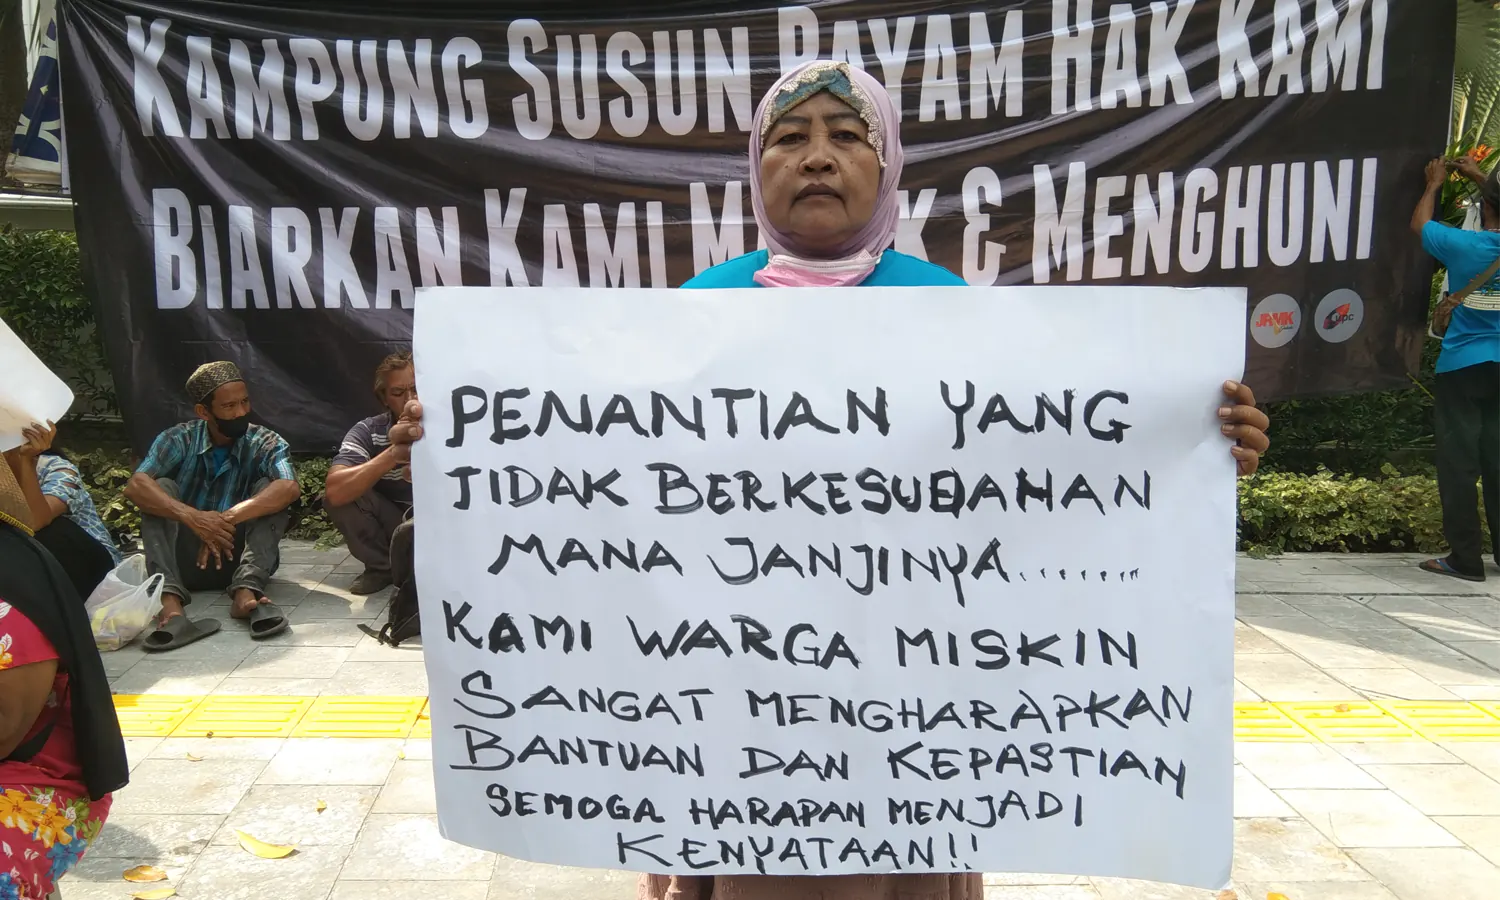 KAMPUNG SUSUN BAYAM HAK KAMI
BIARKAN KAMI & MENGHUNI
JAMK
upc
PENANTIAN YANG
TIDAK BERKESUDAHAN
MANA JANJINYA........
KAMI WARGA MISKIN
SANGAT MENGHARAPKAN
BANTUAN DAN KEPASTIAN
SEMOGA HARAPAN MENJADI
KENYATAAN!!